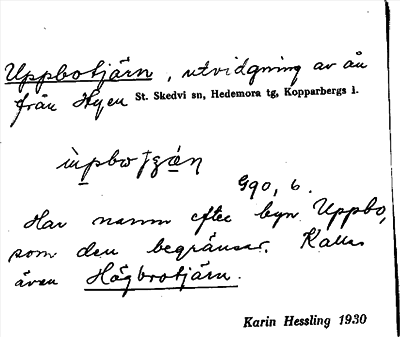 Uppbotjärn, utvidgning av ån
från Hyen St. Skedvi sn, Hedemora tg, Kopparbergs l.
G90, 6.
Har namn efter byn Uppbo,
som den begränsar. Kallas
även Högbrotjärn.
Karin Hessling 1930